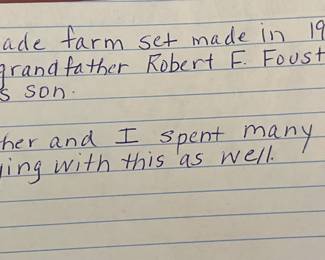 ade farm set made in 19
grandfather Robert F. Foust
s son.
her and I spent many
ying with this as well.